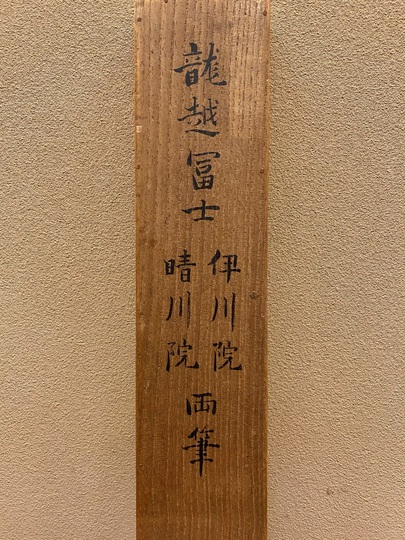 龍越冨士
伊川院
晴川院
両筆